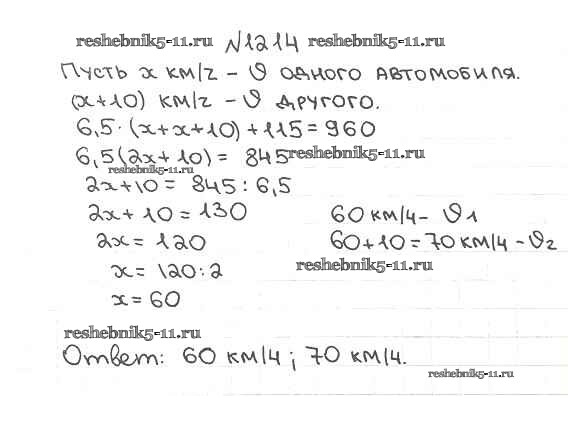 reshebnik5-11.ru №1214 reshebnik5-11.ru
Пусть x км/ч - υ одного автомобиля.
(x+10) км/ч - υ другого.
6,5·(x+x+10)+115=960
6,5(2x+10)= 845 reshebnik5-11.ru
reshebnik5-11.ru
2x+10= 845:6,5
2x+10=130 60 км/ч- υ1
2x=120 60+10=70 км/ч-υ2
x=120:2 reshebnik5-11.ru
x=60
reshebnik5-11.ru
Ответ: 60 км/ч; 70 км/ч.
reshebnik5-11.ru